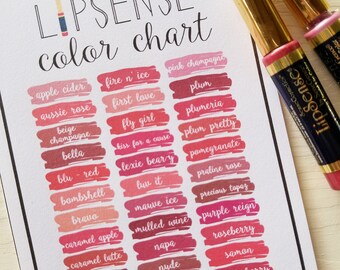 LIPSENSE
color chart
apple cider
aussie rose
beige champagne
bella
blu - red
bombshell
bravo
caramel apple
caramel latte
fire n' ice
first love
fly girl
kiss for a cause
lexie bear-y
luv it
mauve ice
mulled wine
napa
nude
pink champagne
plum
plumeria
plum pretty
pomegranate
praline rose
precious topaz
purple reign
roseberry
samon
LipSense